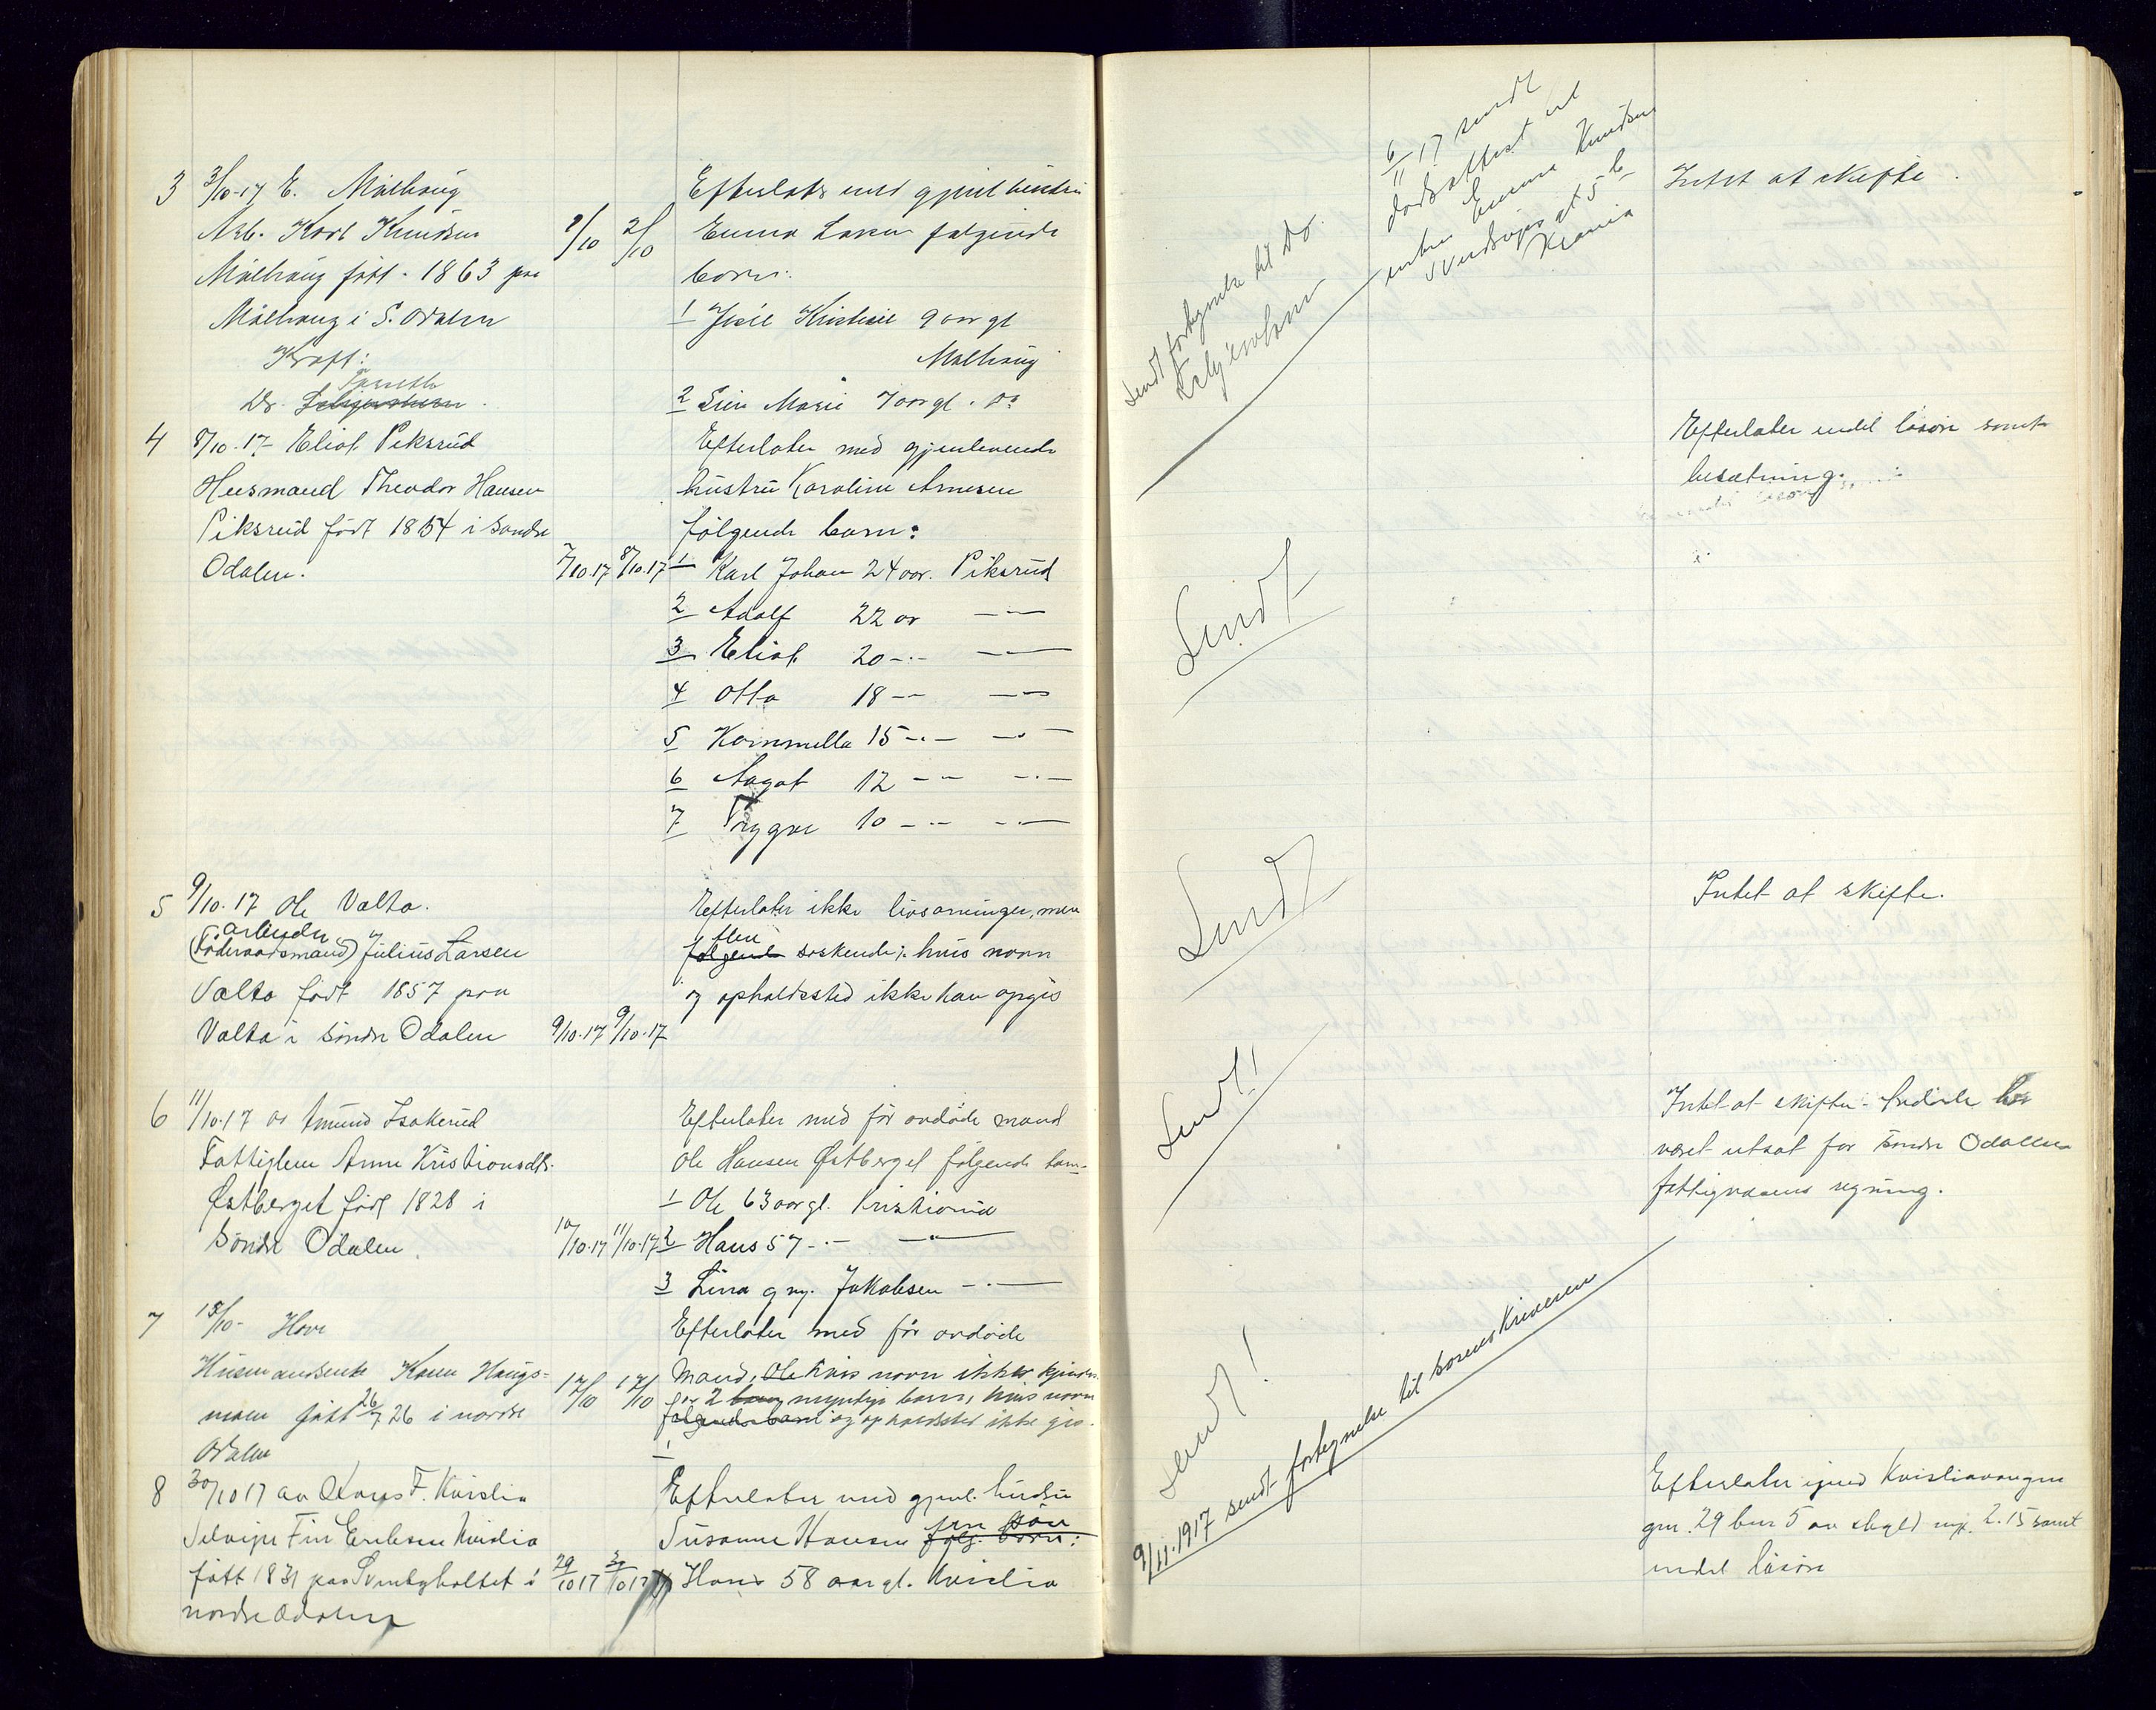 3 3/10-17 E. Målhaug
Arb. Karl Knudsen
Målhaug født 1863 paa
Målhaug i S. Odalen
Kræft:
Dr.
2/10 2/10
Efterlater med gjenl hustru
Emma Larsen følgende
born:
1 Kristine 9 aar gl
Målhaug
2 Marie 7 aar gl. do
4 8/10-17 Eliot Piksrud
Husmand Theodor Hansen
Piksrud født 1854 i Søndre
Odalen.
7/10.17 8/10.17
Efterlater med gjenlevende
hustru Karoline Arnesen
følgende barn:
1 Karl Johan 24 aar. Piksrud
2 Adolf 22 ar —"—
3 Eliot 20 —"— —"—
4 Otto 18 —"— —"—
5 Kornmella 15 —"— —"—
6 Aagot 12 —"— —"—
7 Trygve 10 —"— —"—
5 9/10.17 Ole Valta.
arbeider
(Føderaadsmand) Julius Larsen
Valta født 1857 paa
Valta i Søndre Odalen
9/10.17 9/10.17
Efterlater ikke livsarvinger, men
flere
følgende søskende; hvis navn
og opholdssted ikke kan opgis
6 11/10.17 av Amund Isakerud
Fattiglem Anne Kristiansdtr.
Østberget født 1828 i
Søndre Odalen.
10/10.17 11/10.17
Efterlater med før avdøde mand
Ole Hansen Østberget følgende barn
1 Ole 63 aar gl. Kristiania
2 Hans 57 —"— —"—
3 Lina g m. Jakobsen —"—
7 18/10- Hove
Husmandsenke Karen Haugs-
moen født 26/7 26 i nordre
Odalen
17/10 17/10
Efterlater med før avdøde
mand, Ole hvis navn ikke kjendes
2 myndige barn, hvis navn
følgende barn og opholdsted ikke gis.
1
8 30/10 17 av Hans F. Kvislia
Selveier Fin Eriksen Kvislia
født 1831 paa i
nordre Odalen
29/10 17 30/10 17
Efterlater med gjenl. hustru
Susanne Hansen følg. børn:
en søn
1) Hans 58 aar gl. Kvislia
Sendt fortegnelse til do.
6/11 17 sendt
dødsattest til
enken Emma Knudsen
5 b
Kr.ania
Intet at skifte.
Efterlater endel løsøre samt
besætning.
Sendt
Sendt
Intet at skifte.
Sendt!
Intet at skifte. Avdøde har
været utsat for Søndre Odalens
fattigvæsens regning.
Sendt!
9/11.1917 sendt fortegnelse til sorenskriveren
Efterlater eiend Kvisliavangen
gnr. 29 bnr 5 av skyld mk. 2.15 samt
endel løsøre